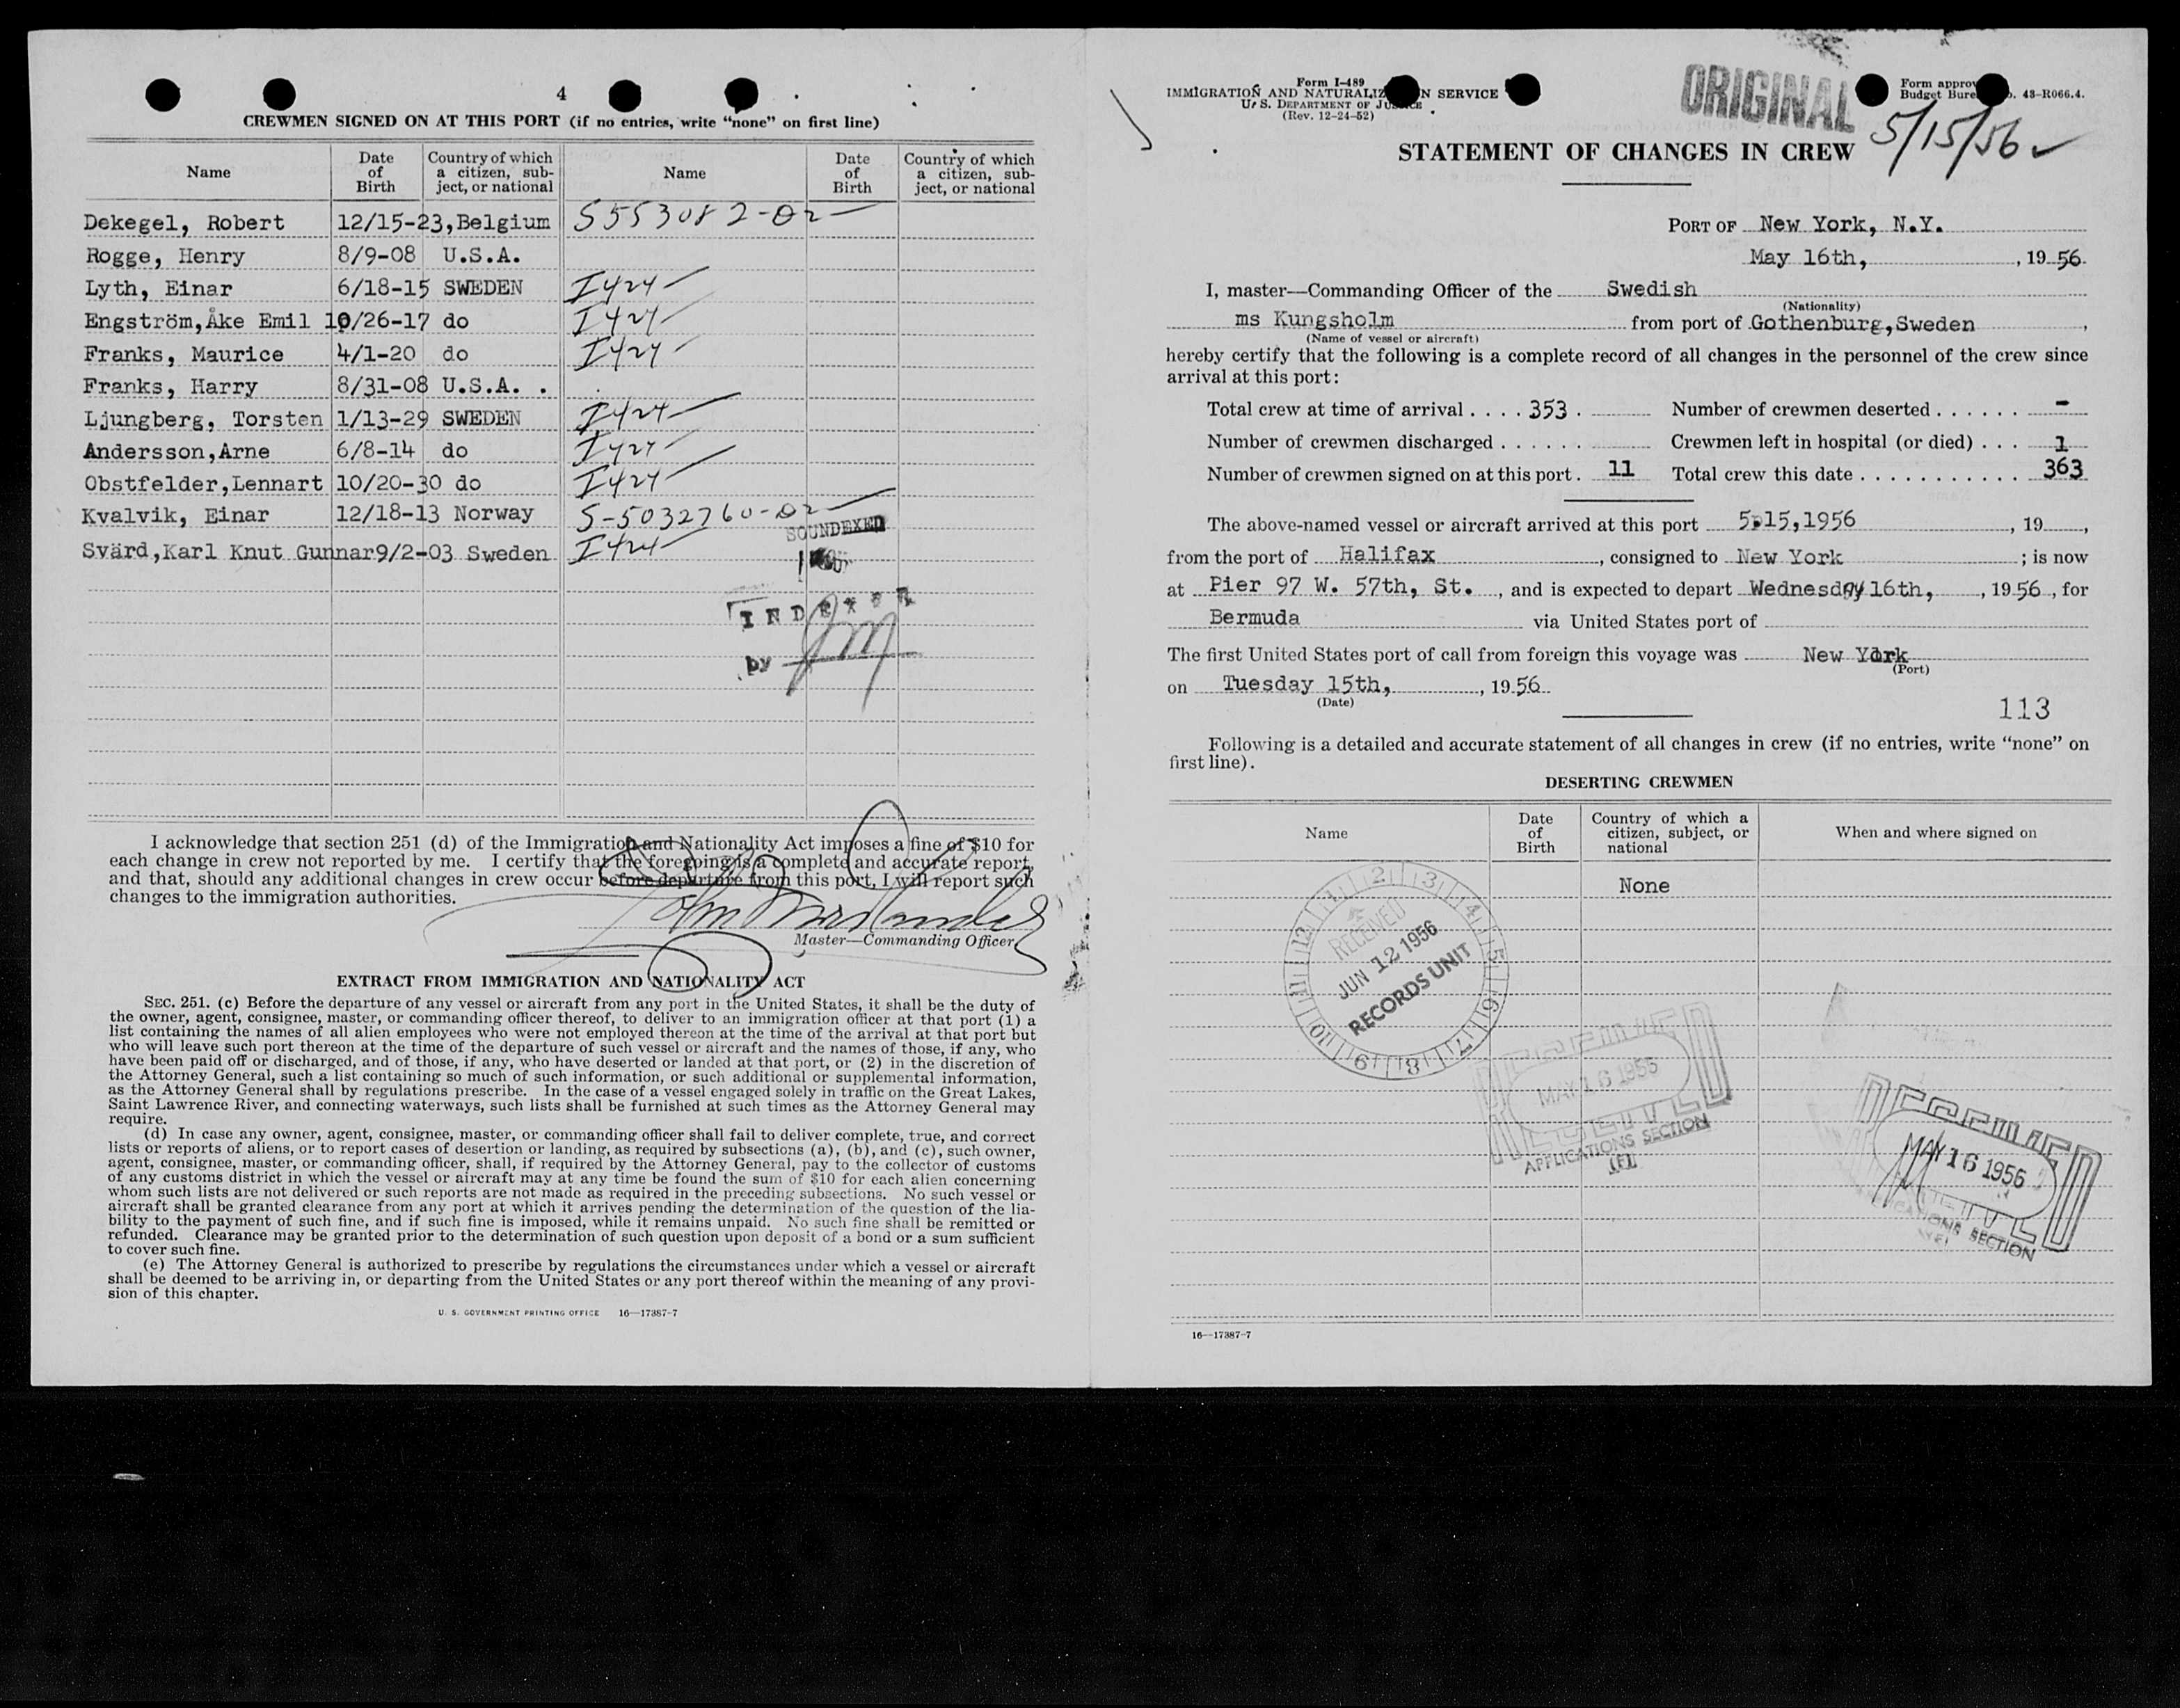 4
CREWMEN SIGNED ON AT THIS PORT (if no entries, write “none” on first line)
Name Date of Birth Country of which a citizen, subject, or national Name Date of Birth Country of which a citizen, subject, or national
Dekegel, Robert 12/15-23, Belgium S553082-D2
Rogge, Henry 8/9-08 U.S.A.
Lyth, Einar 6/18-15 SWEDEN I424
Engström, Åke Emil 10/26-17 do I424
Franks, Maurice 4/1-20 do I424
Franks, Harry 8/31-08 U.S.A.
Ljungberg, Torsten 1/13-29 SWEDEN I424
Andersson, Arne 6/8-14 do I424
Obstfelder, Lennart 10/20-30 do I424
Kvalvik, Einar 12/18-13 Norway S-5032760-D2
SOUNDEXED
Svärd, Karl Knut Gunnar 9/2-03 Sweden I424
INDEXED
by JM
I acknowledge that section 251 (d) of the Immigration and Nationality Act imposes a fine of $10 for
each change in crew not reported by me. I certify that the foregoing is a complete and accurate report,
and that, should any additional changes in crew occur before departure from this port, I will report such
changes to the immigration authorities.
Master—Commanding Officer
EXTRACT FROM IMMIGRATION AND NATIONALITY ACT
SEC. 251. (c) Before the departure of any vessel or aircraft from any port in the United States, it shall be the duty of
the owner, agent, consignee, master, or commanding officer thereof, to deliver to an immigration officer at that port (1) a
list containing the names of all alien employees who were not employed thereon at the time of the arrival at that port but
who will leave such port thereon at the time of the departure of such vessel or aircraft and the names of those, if any, who
have been paid off or discharged, and of those, if any, who have deserted or landed at that port, or (2) in the discretion of
the Attorney General, such a list containing so much of such information, or such additional or supplemental information,
as the Attorney General shall by regulations prescribe. In the case of a vessel engaged solely in traffic on the Great Lakes,
Saint Lawrence River, and connecting waterways, such lists shall be furnished at such times as the Attorney General may
require.
(d) In case any owner, agent, consignee, master, or commanding officer shall fail to deliver complete, true, and correct
lists or reports of aliens, or to report cases of desertion or landing, as required by subsections (a), (b), and (c), such owner,
agent, consignee, master, or commanding officer, shall, if required by the Attorney General, pay to the collector of customs
of any customs district in which the vessel or aircraft may at any time be found the sum of $10 for each alien concerning
whom such lists are not delivered or such reports are not made as required in the preceding subsections. No such vessel or
aircraft shall be granted clearance from any port at which it arrives pending the determination of the question of the lia-
bility to the payment of such fine, and if such fine is imposed, while it remains unpaid. No such fine shall be remitted or
refunded. Clearance may be granted prior to the determination of such question upon deposit of a bond or a sum sufficient
to cover such fine.
(e) The Attorney General is authorized to prescribe by regulations the circumstances under which a vessel or aircraft
shall be deemed to be arriving in, or departing from the United States or any port thereof within the meaning of any provi-
sion of this chapter.
U. S. GOVERNMENT PRINTING OFFICE 16—17387-7
Form I-489
IMMIGRATION AND NATURALIZ N SERVICE
U. S. DEPARTMENT OF JUSTICE
(Rev. 12-24-52)
ORIGINAL
Form approv
Budget Bure . 43-R066.4.
5/15/56
STATEMENT OF CHANGES IN CREW
PORT OF New York, N.Y.
May 16th, , 19 56
I, master—Commanding Officer of the Swedish
(Nationality)
ms Kungsholm from port of Gothenburg, Sweden ,
(Name of vessel or aircraft)
hereby certify that the following is a complete record of all changes in the personnel of the crew since
arrival at this port:
Total crew at time of arrival . . . . 353 . Number of crewmen deserted . . . . . . -
Number of crewmen discharged . . . . . . Crewmen left in hospital (or died) . . . 1
Number of crewmen signed on at this port . 11 Total crew this date . . . . . . . . . . . 363
The above-named vessel or aircraft arrived at this port 5.15,1956 , 19 ,
from the port of Halifax , consigned to New York ; is now
at Pier 97 W. 57th, St. , and is expected to depart Wednesday 16th, , 19 56 , for
Bermuda via United States port of
The first United States port of call from foreign this voyage was New York
(Port)
on Tuesday 15th, , 19 56
(Date)
113
Following is a detailed and accurate statement of all changes in crew (if no entries, write “none” on
first line).
DESERTING CREWMEN
Name Date of Birth Country of which a citizen, subject, or national When and where signed on
None
12 1 2 3 4 5 6 7 8 9 10 11
RECEIVED
JUN 12 1956
RECORDS UNIT
RECEIVED
MAY 16 1956
APPLICATIONS SECTION
RECEIVED
MAY 16 1956
APPLICATIONS SECTION
16—17387-7